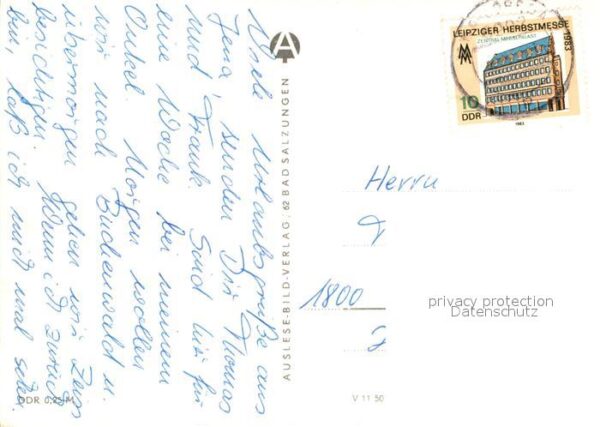 Viele Urlaubsgrüße aus
Jena senden Dir Thomas
und Frank. Sind hier für
eine Woche bei meinem
Onkel. Morgen wollen
wir nach Buchenwald u.
übermorgen gehen wir Zeiss
besichtigen. Wenn ich zurück
bin, laß ich mich mal sehen.
AUSLESE-BILD-VERLAG, 62 BAD SALZUNGEN
DDR 0,25 M
V 11 50
LEIPZIGER HERBSTMESSE
1983
ZENTRAL-MESSEPALAST
MM
10
DDR
1983
Herrn
1800
privacy protection
Datenschutz